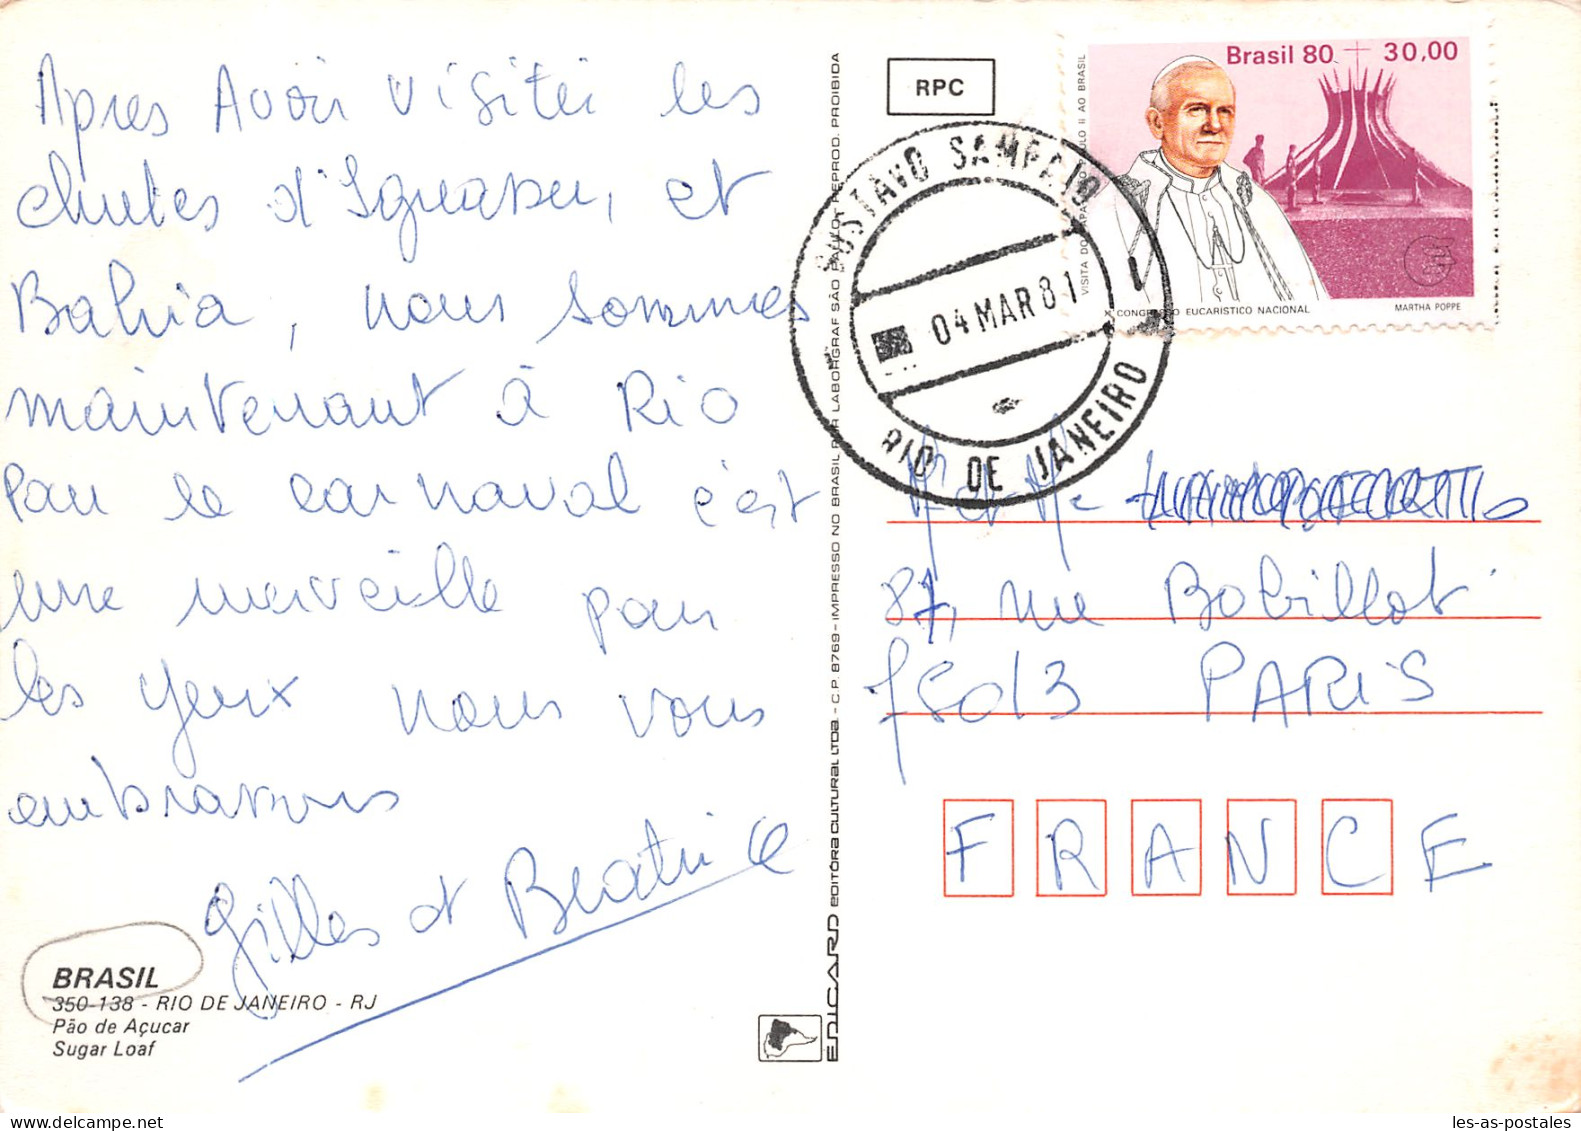 Apres Avoir visiter les
chutes d'Iguassu, et
Bahia, nous sommes
maintenant à Rio
pour le carnaval c'est
une merveille pour
les yeux nous vous
embrassons
Gilles et Beatrice
BRASIL
350-138 - RIO DE JANEIRO - RJ
Pão de Açucar
Sugar Loaf
EDICARD EDITORA CULTURAL LTDA. - C.P. 8769 - IMPRESSO NO BRASIL POR LABORGRAF SÃO PAULO. REPROD. PROIBIDA
RPC
Brasil 80 30,00
VISITA DO PAPA JOÃO PAULO II AO BRASIL
X CONGRESSO EUCARÍSTICO NACIONAL
MARTHA POPPE
GUSTAVO SAMPAIO
04 MAR 81
RIO DE JANEIRO
Mr et Me
87, rue Bobillot
75013 PARIS
FRANCE
les-as-postales